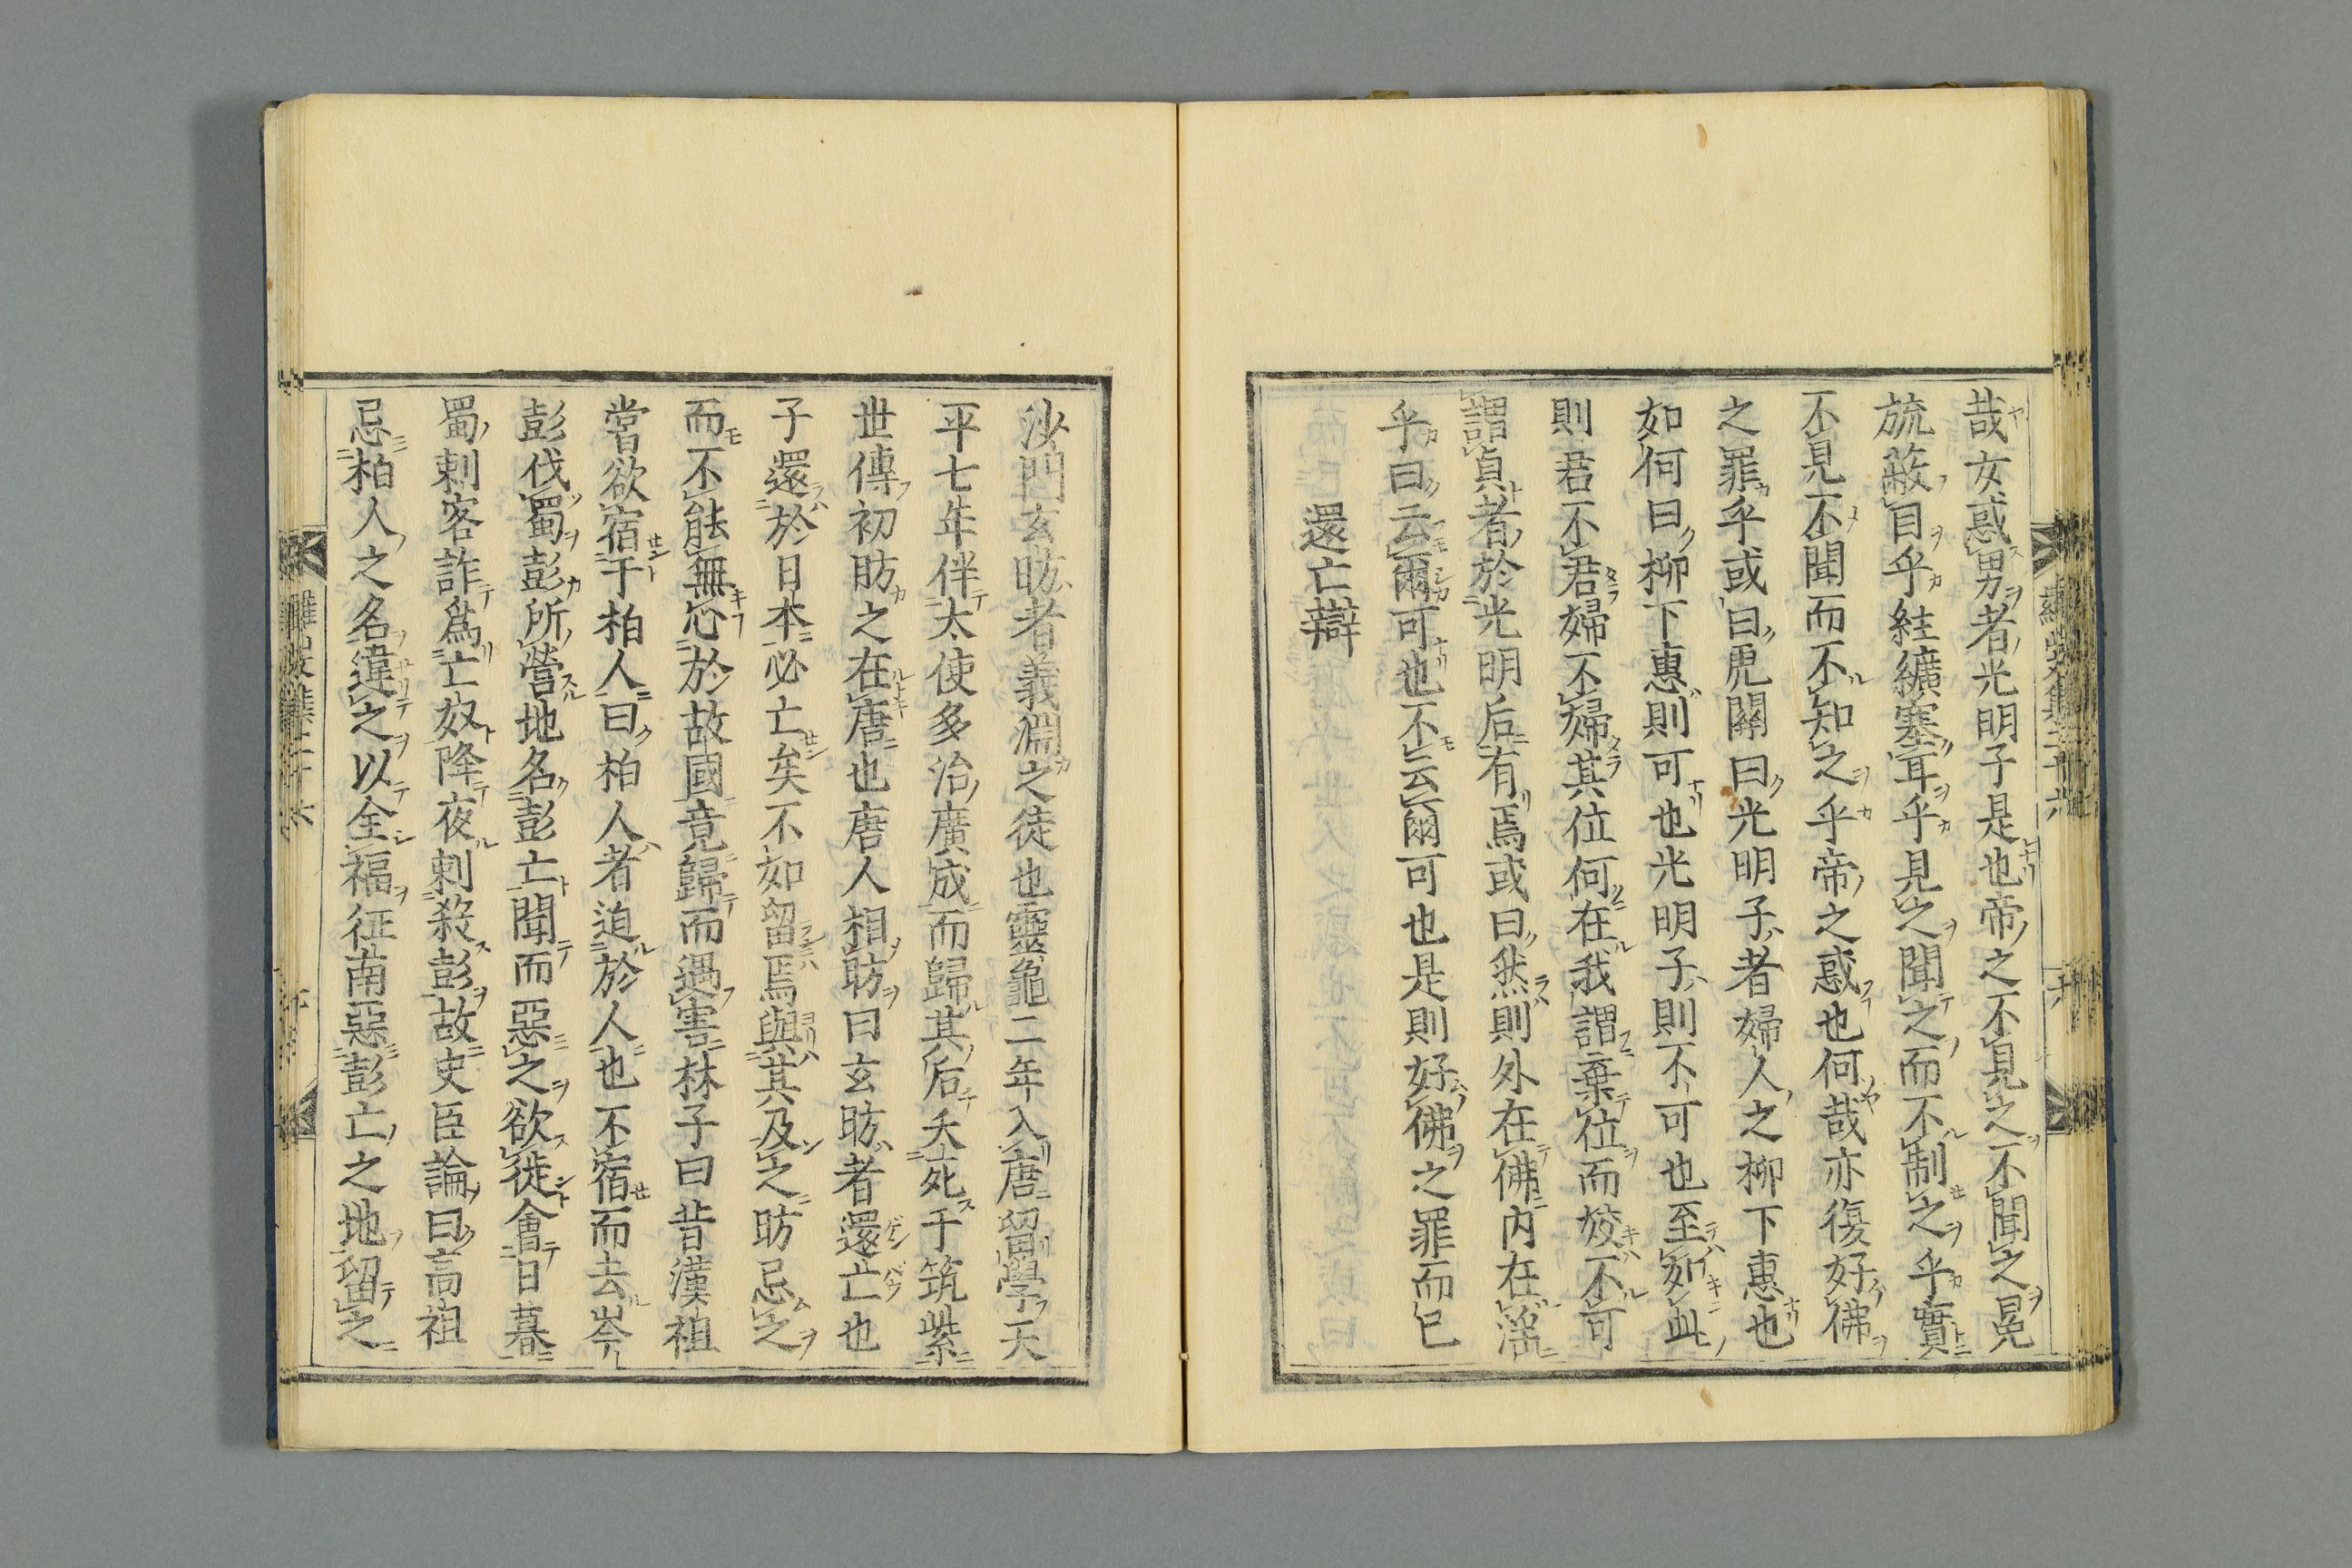 哉女惑男者光明子是也帝之不見之不聞之冕
旒蔽目乎絓纊塞耳乎見之聞之而不制之乎實
不見不聞而不知之乎帝之惑也何哉亦復好佛
之罪乎或曰虎關曰光明子者婦人之柳下惠也
如何曰柳下惠則可也光明子則不可也至如此
則君不君婦不婦其位何在我謂棄位而姣不可
謂貞者於光明后有焉或曰然則外在佛內在淫
乎曰云爾可也不云爾可也是則好佛之罪而已
還亡辯
沙門玄昉者義淵之徒也靈龜二年入唐留學天
平七年伴大使多治廣成而歸其后夭死于筑紫
世傳初昉之在唐也唐人相昉曰玄昉者還亡也
子還於日本必亡矣不如留焉與其及之昉忌之
而不能無忌於故國竟歸而遇害林子曰昔漢祖
嘗欲宿于柏人曰柏人者迫於人也不宿而去岑
彭伐蜀彭所營地名彭亡聞而惡之欲徙會日暮
蜀刺客詐爲亡奴降夜刺殺彭故史臣論曰高祖
忌柏人之名違之以全福征南惡彭亡之地留之